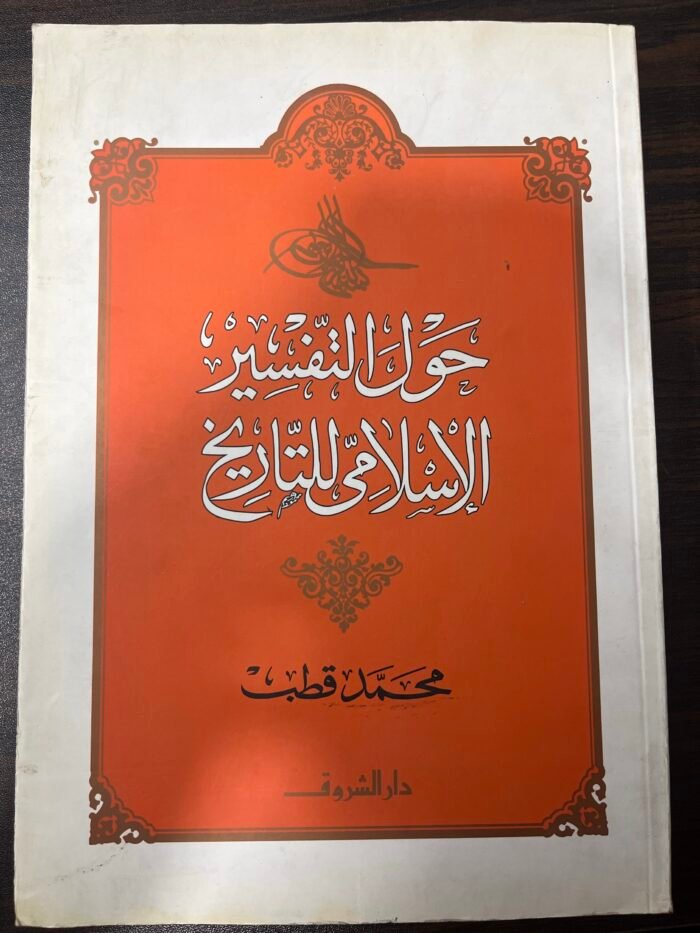 حَوْلَ التَّفْسِير
الإِسْلَامِىّ لِلتَّارِيخ
محمّد قطب
دار الشروق